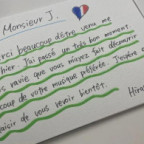 Monsieur J.
Merci beaucoup d'être venu me
hier. J'ai passé un très bon moment.
ravie que vous m'ayez fait découvrir
coup de votre musique préférée. J'espère
plaisir de vous revoir bientôt.